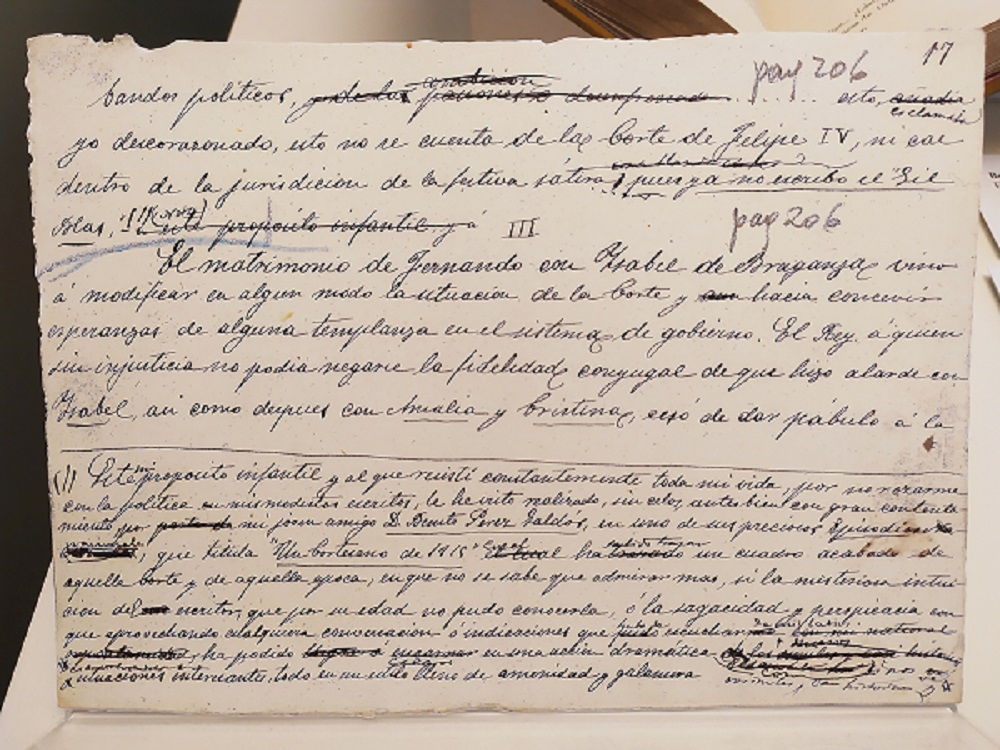 17
pag 206
condicion
bandos políticos, y de las pasiones ........ esto, añadia
esclamaba
yo descorazonado, esto no se cuenta de la Corte de Felipe IV, ni cae
dentro de la jurisdicion de la festiva sátira, pues ya no escribo el "Gil
Blas," este proposito infantil y á III
pag 206
El matrimonio de Fernando con Isabel de Braganza vino
á modificar en algun modo la situacion de la Corte y hacia concevir
esperanzas de alguna templanza en el sistema de gobierno. El Rey, á quien
sin injusticia no podia negarse la fidelidad conyugal de que hizo alarde con
Isabel, asi como despues con Amalia y Cristina, cesó de dar pábulo á la
(1) Este mi proposito infantil y al que resistí constantemente toda mi vida, por no rozarme
con la política en mis modestos escritos, le he visto realizado, sin celos, antes bien con gran contenta
miento por parte de mi joven amigo D. Benito Perez Galdós, en uno de sus preciosos Episodios Na
cionales, que titula "Un Cortesano de 1815" En el cual ha sabido trazar un cuadro acabado de
aquella Corte y de aquella epoca, en que no se sabe que admirar mas, si la misteriosa intui
cion del escritor, que por su edad no pudo conocerla, ó la sagacidad y perspicacia con
que aprovechando cualquiera conversacion ó indicaciones que pudo escuchar
ha podido llegar a encarnar en una accion dramática
situaciones interesantes, todo en un estilo lleno de amenidad y galanura